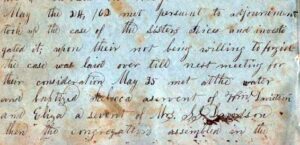 May the 34, /63 met persuant to adjournment
took up the case of the sisters Dices and investi
gated it, upon their not being willing to forgive
the case was laved over till next meeting for
their consideration May 35 met at the water
and baptized Rebeca a servent of Wm Davidson
and Eliza a servent of Mrs. Davidson
then the congregations assembled in the